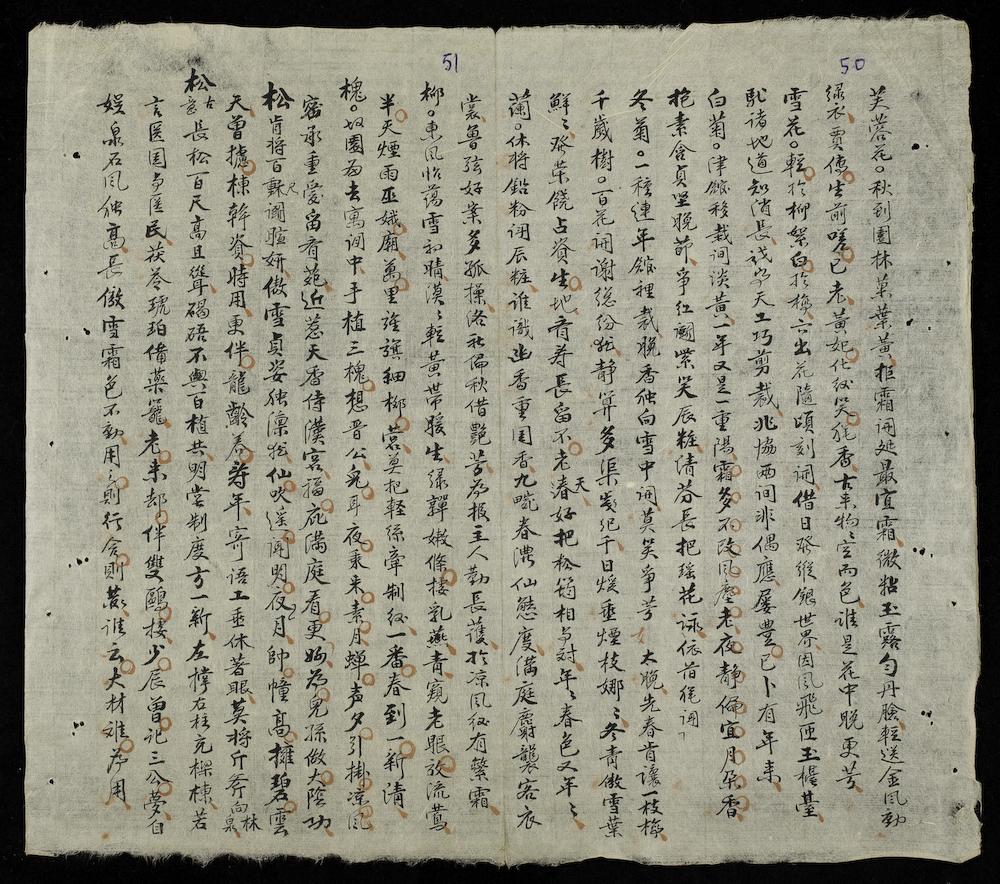 50
芙蓉花。秋到園林菓葉黃拒霜開処最宜霜微粘玉露勻丹臉輕送金風動
綠衣賈傅生前嗟已老黃妃化後笑能香古來物々空而色誰是花中晚更芳
雪花。輕於柳絮白於梅六出花隨頃刻開借日發縱銀世界因風飛西玉樓臺
馳諸地道知消長誠字天工巧剪裁兆協兩間非偶應屢豊已卜有年来
白菊。津館移栽洞淡黃一年又是一重陽霜多不改風塵老夜靜偏宜月朶香
抱素含貞堅晚節爭紅闘紫笑辰粧清芬長把瑤花詠依前徑洞
冬菊。一種連年館裡栽晚香独向雪中開莫笑爭芳太晚先春肯讓一枝梅
千歲樹。百花開謝総紛紜静算多渠幾紀千日煖垂煙枝娜々冬青傲雪葉
鮮々發荣饒占資生地看寿長留不老天春好把松筠相与對年々春色又年々
蘭。休將鉛粉詡辰粧誰識幽香重国香九畹春濃仙態度滿庭麝襲客衣
裳魯弦好案多孤操洛社偏秋借艷芳為报主人勤長護於凉風紋有繁霜
51
柳。東風怡蕩雪初晴漠々輕黃帶暖生緑嚲嫩條樓乳燕青窺老眼放流鶯
半天煙雨巫娥廟萬里旌旗細柳營莫把輕絲牽制紋一番春到一新清
槐。故園为去寓洞中手植三槐想晋公兔耳夜乗来素月蟬声夕引掛凉風
密承重愛畄看苑近惹天香侍漢宮福庇滿庭看更好為兒孫做大陰功
松。肯將百尺鬪暄妍傲雪貞姿独凛然仙吹遥聞明夜月帥幢高擁碧雲
天曾據棟幹資時用更伴龍齡養寿年寄語工垂休著眼莫將斤斧向林泉
松。古苍長松百尺高且聳碣碍不與百植共明堂制度方一新左撑右柱充樑棟若
言医国与医民茯苓琥珀備藥籠老来却伴雙鷗棲少辰曽記三公夢自
娯泉石風独高長傲雪霜色不動用之則行舍則蔵誰云大材难為用